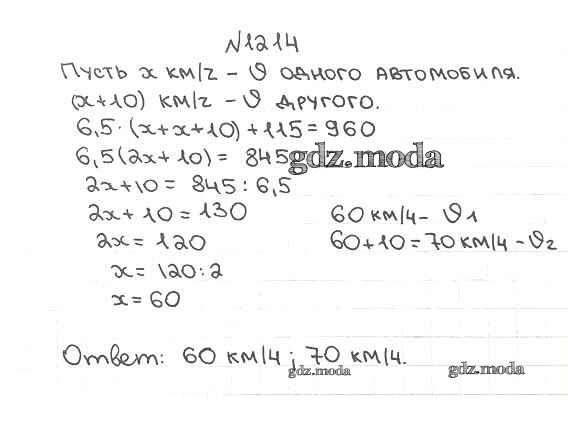 №1214
Пусть x км/ч – ϑ одного автомобиля.
(x+10) км/ч – ϑ другого.
6,5·(x+x+10)+115=960
6,5(2x+10)= 845
gdz.moda
2x+10= 845:6,5
2x+10=130
60 км/ч – ϑ1
2x=120
60+10=70 км/ч – ϑ2
x=120:2
x=60
Ответ: 60 км/ч; 70 км/ч.
gdz.moda
gdz.moda